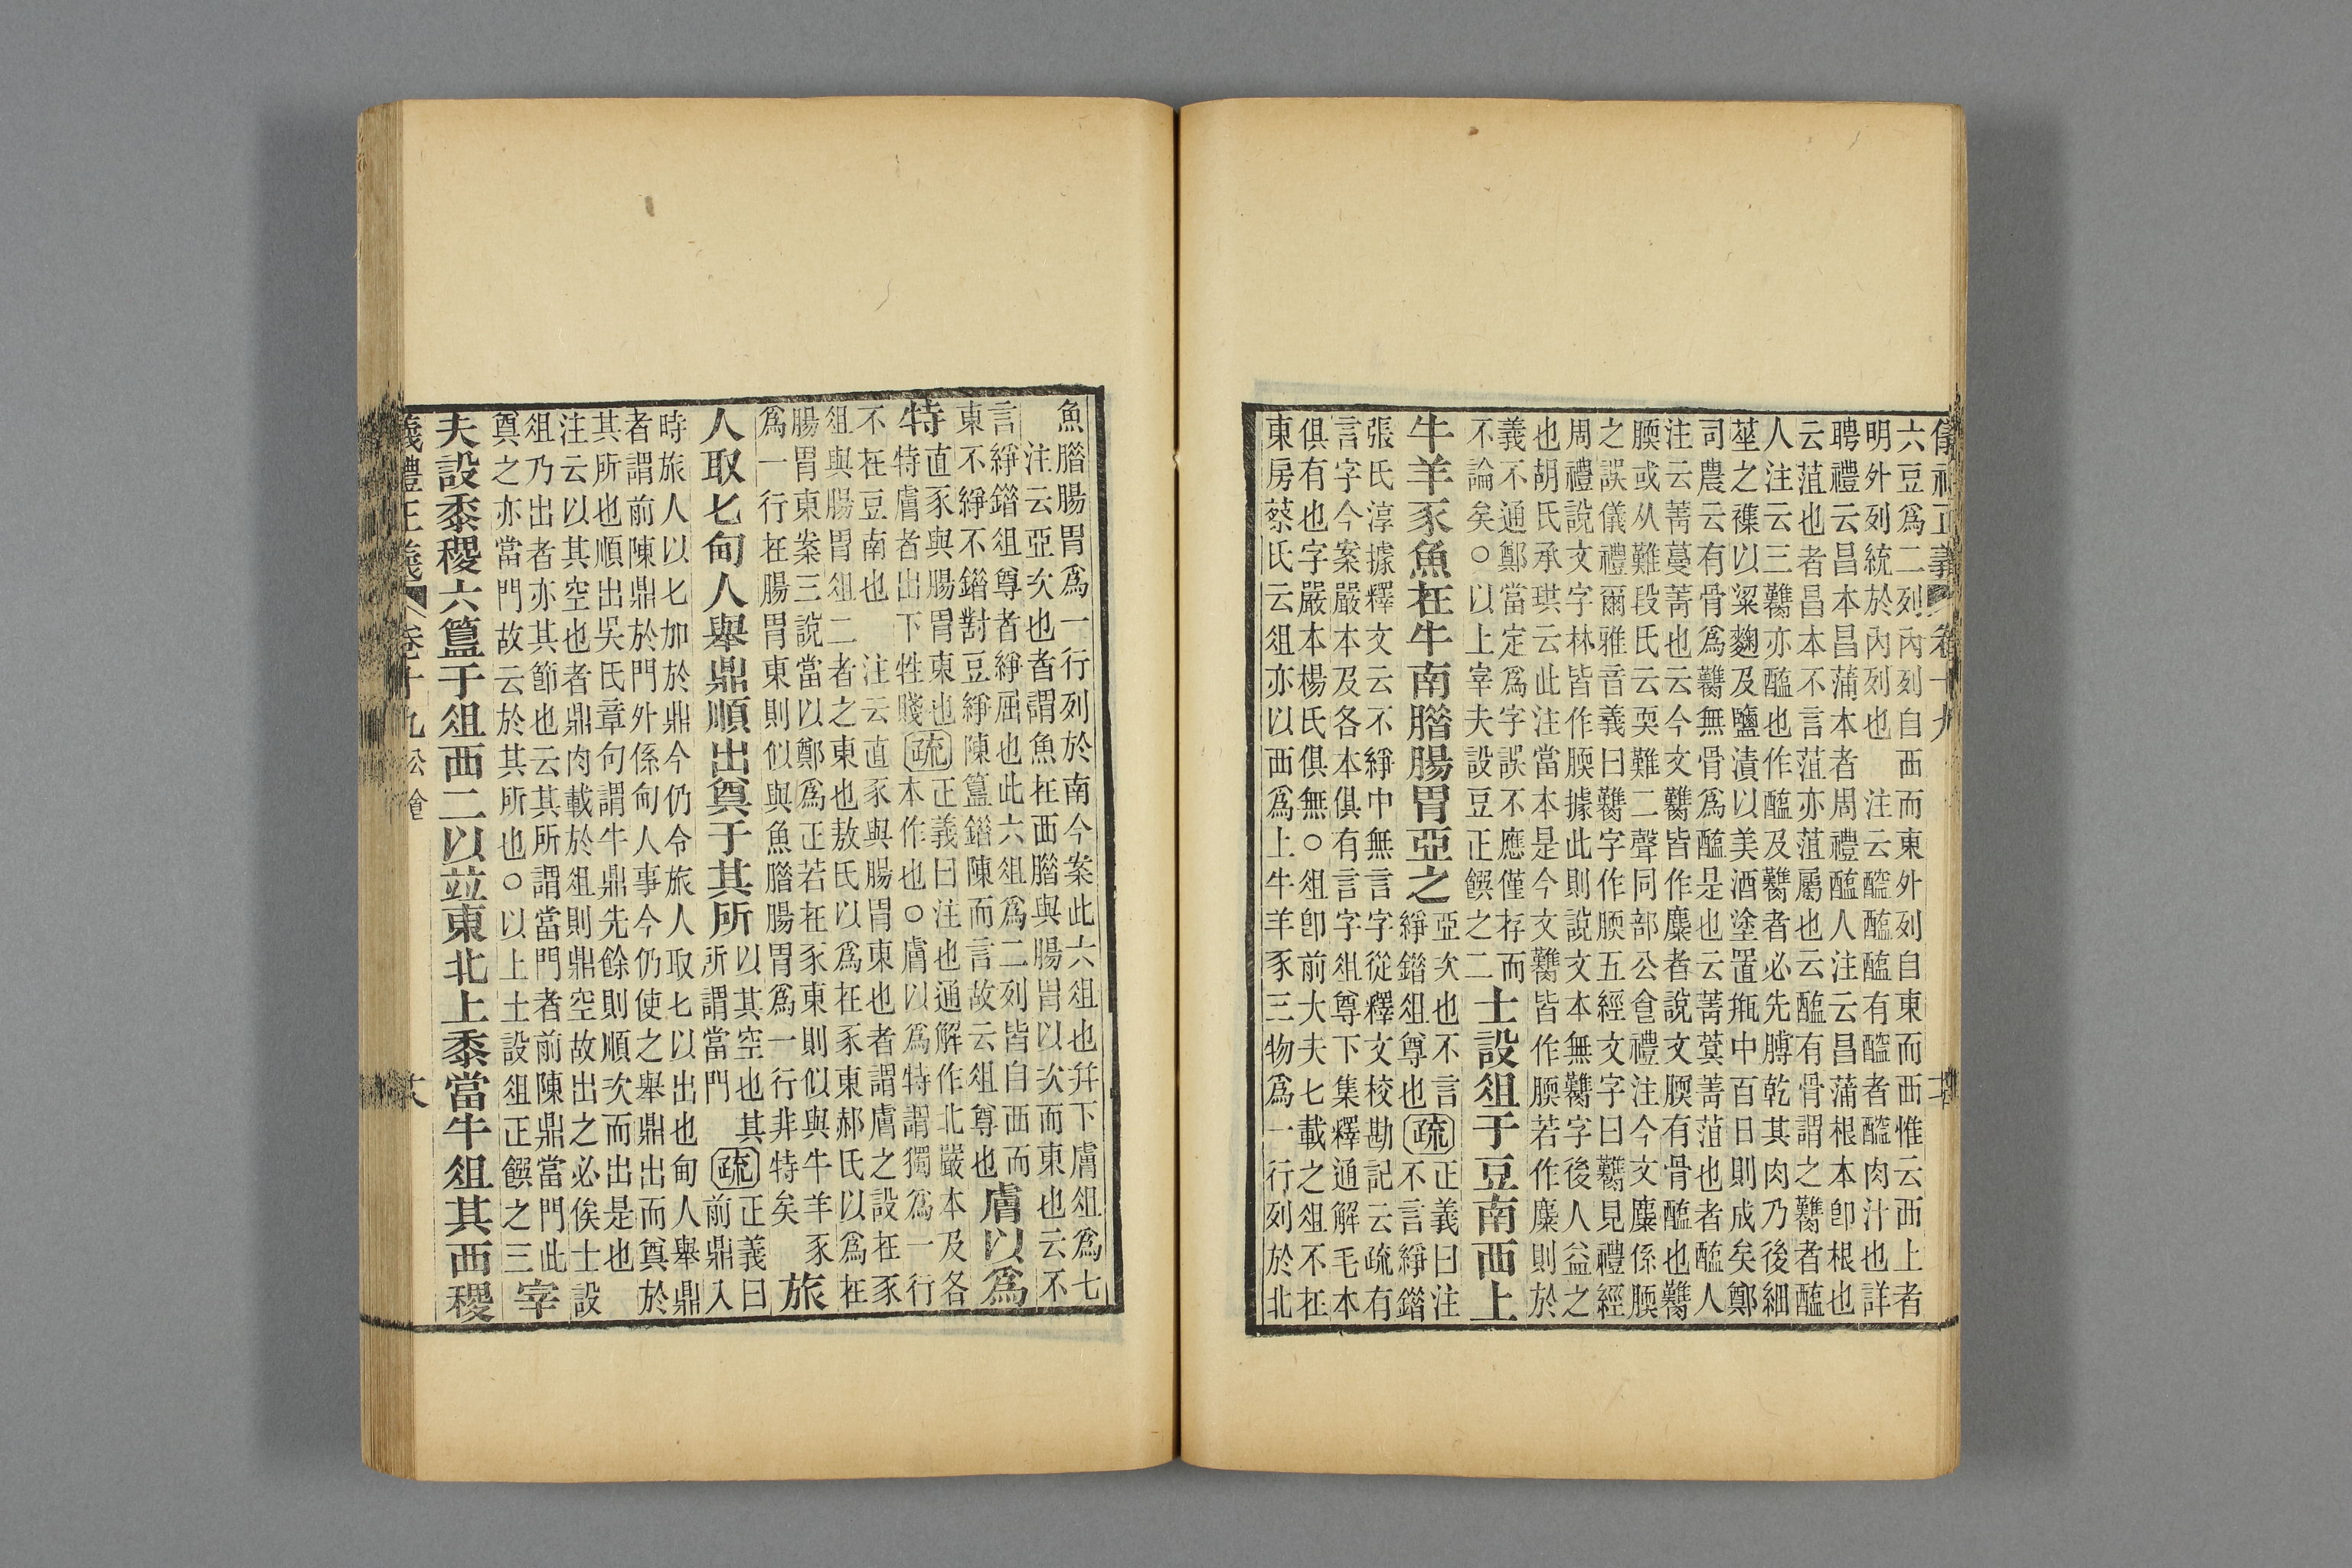 儀禮正義 卷十九
六豆爲二列內列自西而東外列自東而西惟云西上者
明外列統於內列也 注云醓醢醢有醓者醓肉汁也詳
聘禮云昌本昌蒲本者周禮醢人注云昌蒲根本卽根也
云菹也者昌本不言菹亦菹屬也云醢有骨謂之臡者醢
人注云三臡亦醢也作醢及臡者必先膊乾其肉乃後細
莝之襍以粱麴及鹽漬以美酒塗置㼽中百日則成矣鄭
司農云有骨爲臡無骨爲醢是也云菁蓂菁菹也者醢人
注云菁蔓菁也云今文臡皆作麋者說文腝有骨醢也臡
腝或从難段氏云耎難二聲同部公食禮注今文麋係腝
之誤儀禮爾雅音義曰臡字作腝五經文字曰臡見禮經
周禮說文字林皆作腝據此則說文本無臡字後人益之
也胡氏承珙云此注當本是今文臡皆作腝若作麋則於
義不通鄭當定爲字誤不應僅存而
不論矣○以上宰夫設豆正饌之二
士設俎于豆南西上
牛羊豕魚在牛南腊腸胃亞之
亞次也不言
綪錯俎尊也
疏
正義曰注
不言綪錯
張氏淳據釋文云不綪中無言字從釋文校勘記云疏有
言字今案嚴本及各本俱有言字俎尊下集釋通解毛本
俱有也字嚴本楊氏俱無○俎卽前大夫匕載之俎不在
東房蔡氏云俎亦以西爲上牛羊豕三物爲一行列於北
魚腊腸胃爲一行列於南今案此六俎也幷下膚俎爲七
注云亞次也者謂魚在西腊與腸胃以次而東也云不
言綪錯俎尊者綪屈也此六俎爲二列皆自西而
東不綪不錯對豆綪陳簋錯陳而言故云俎尊也
膚以爲
特
直豕與腸胃東也
特膚者出下牲賤
疏
正義曰注也通解作北嚴本及各
本作也○膚以爲特謂獨爲一行
不在豆南也 注云直豕與腸胃東也者謂膚之設在豕
俎與腸胃俎二者之東也敖氏以爲在豕東郝氏以爲在
腸胃東案三說當以鄭爲正若在豕東則似與牛羊豕
爲一行在腸胃東則似與魚腊腸胃爲一行非特矣
旅
人取匕甸人舉鼎順出奠于其所
以其空也其
所謂當門
疏
正義曰
前鼎入
時旅人以匕加於鼎今仍令旅人取匕以出也甸人舉鼎
者謂前陳鼎於門外係甸人事今仍使之舉鼎出而奠於
其所也順出吳氏章句謂牛鼎先餘則順次而出是也
注云以其空也者鼎肉載於俎則鼎空故出之必俟士設
俎乃出者亦其節也云其所謂當門者前陳鼎當門此
奠之亦當門故云於其所也○以上士設俎正饌之三
宰
夫設黍稷六簋于俎西二以竝東北上黍當牛俎其西稷
儀禮正義 卷十九